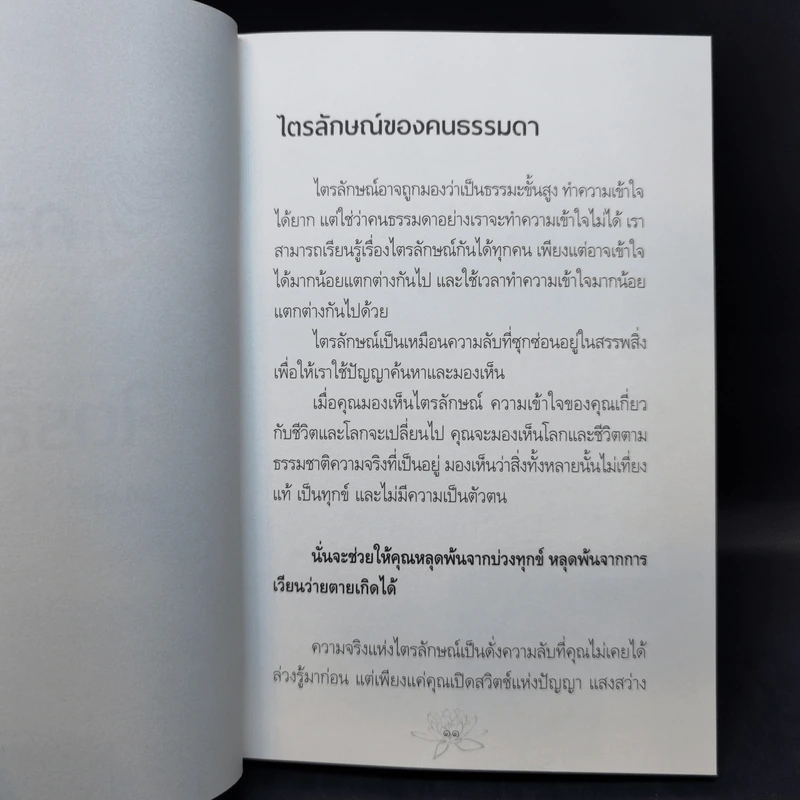 ไตรลักษณ์ของคนธรรมดา
ไตรลักษณ์อาจถูกมองว่าเป็นธรรมะขั้นสูง ทำความเข้าใจ
ได้ยาก แต่ใช่ว่าคนธรรมดาอย่างเราจะทำความเข้าใจไม่ได้ เรา
สามารถเรียนรู้เรื่องไตรลักษณ์กันได้ทุกคน เพียงแต่อาจเข้าใจ
ได้มากน้อยแตกต่างกันไป และใช้เวลาทำความเข้าใจมากน้อย
แตกต่างกันไปด้วย
ไตรลักษณ์เป็นเหมือนความลับที่ซุกซ่อนอยู่ในสรรพสิ่ง
เพื่อให้เราใช้ปัญญาค้นหาและมองเห็น
เมื่อคุณมองเห็นไตรลักษณ์ ความเข้าใจของคุณเกี่ยว
กับชีวิตและโลกจะเปลี่ยนไป คุณจะมองเห็นโลกและชีวิตตาม
ธรรมชาติความจริงที่เป็นอยู่ มองเห็นว่าสิ่งทั้งหลายนั้นไม่เที่ยง
แท้ เป็นทุกข์ และไม่มีความเป็นตัวตน
นั่นจะช่วยให้คุณหลุดพ้นจากบ่วงทุกข์ หลุดพ้นจากการ
เวียนว่ายตายเกิดได้
ความจริงแห่งไตรลักษณ์เป็นดั่งความลับที่คุณไม่เคยได้
ล่วงรู้มาก่อน แต่เพียงแค่คุณเปิดสวิตช์แห่งปัญญา แสงสว่าง
๑๑